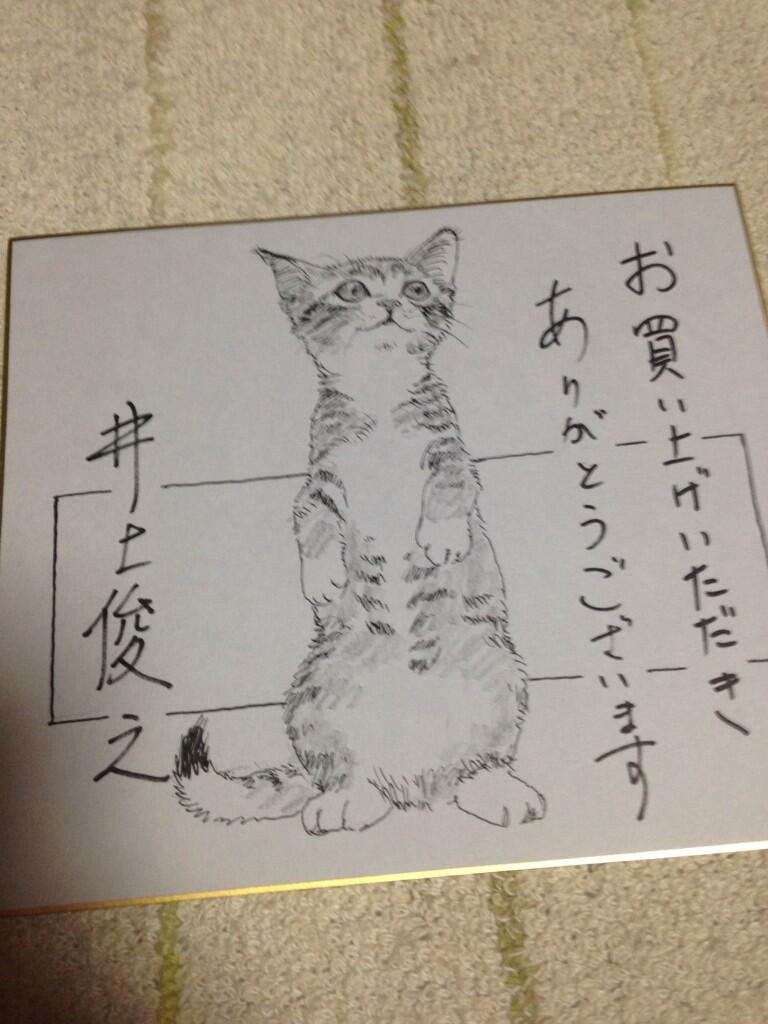 お買い上げいただき
ありがとうございます
井士俊之